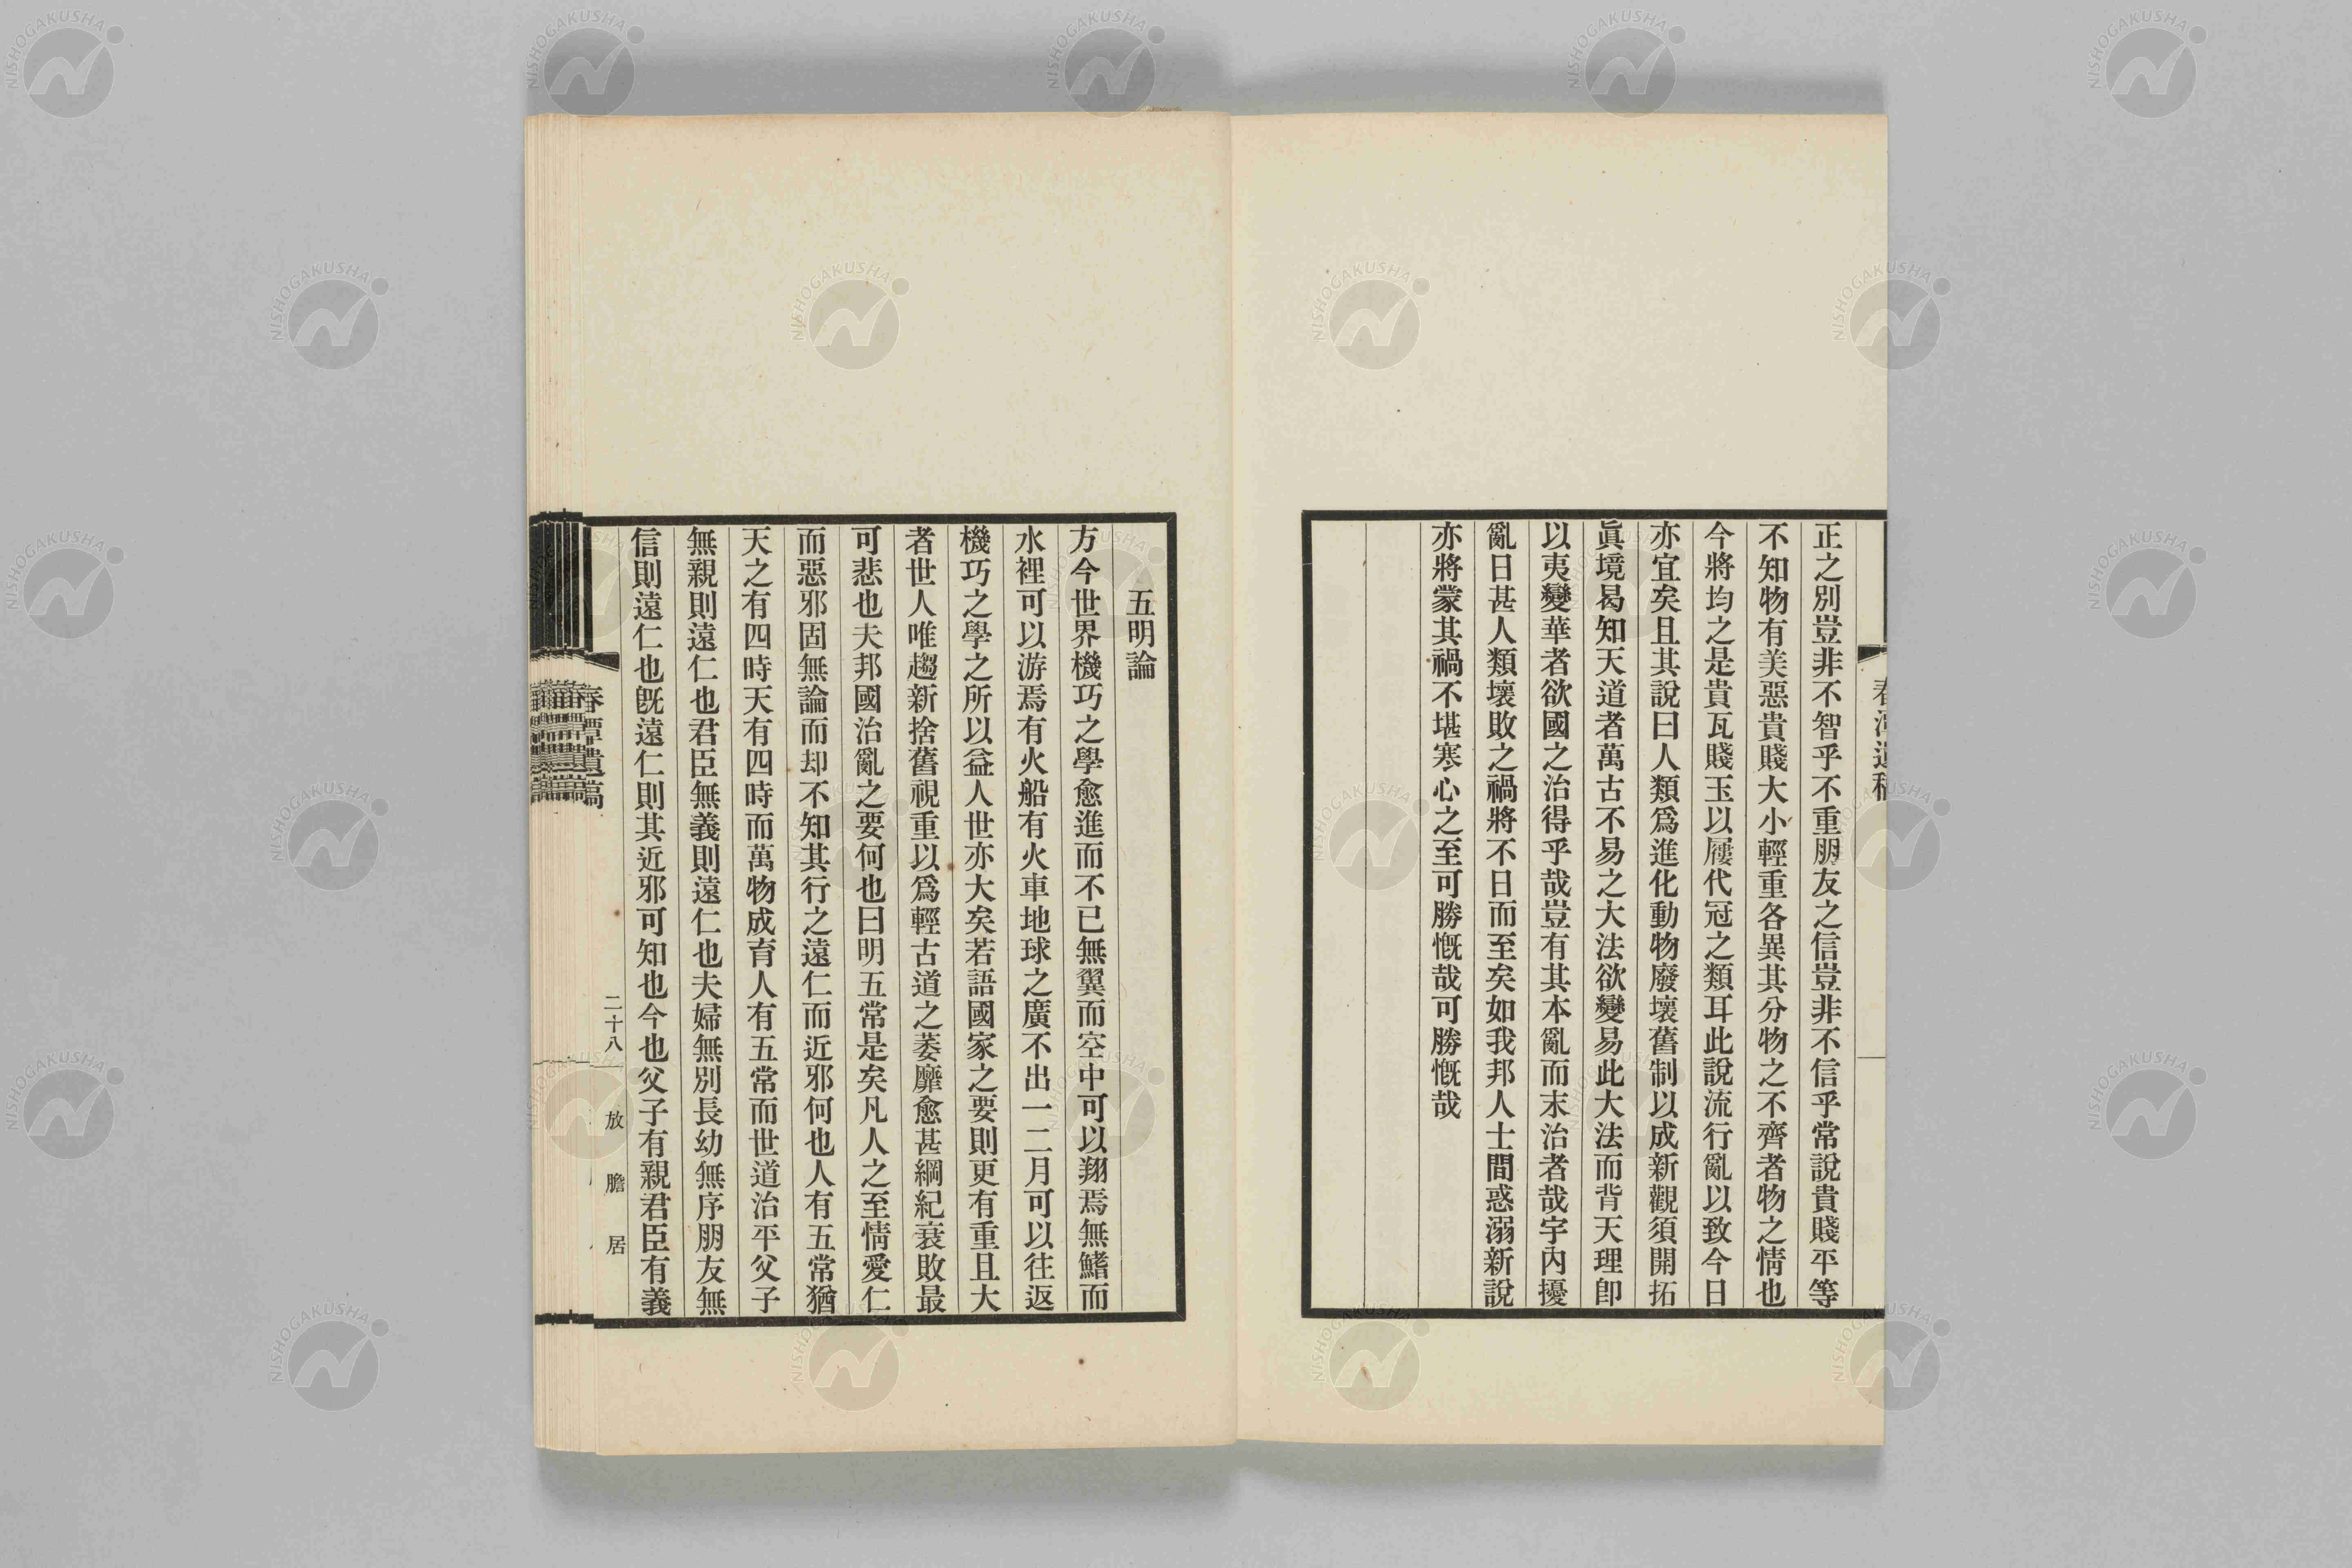 正之別豈非不智乎不重朋友之信豈非不信乎常說貴賤平等
不知物有美惡貴賤大小輕重各異其分物之不齊者物之情也
今將均之是貴瓦賤玉以屨代冠之類耳此說流行亂以致今日
亦宜矣且其說曰人類爲進化動物廢壞舊制以成新觀須開拓
眞境曷知天道者萬古不易之大法欲變易此大法而背天理卽
以夷變華者欲國之治得乎哉豈有其本亂而末治者哉宇內擾
亂日甚人類壞敗之禍將不日而至矣如我邦人士間惑溺新說
亦將蒙其禍不堪寒心之至可勝慨哉可勝慨哉
五明論
方今世界機巧之學愈進而不已無翼而空中可以翔焉無鰭而
水裡可以游焉有火船有火車地球之廣不出一二月可以往返
機巧之學之所以益人世亦大矣若語國家之要則更有重且大
者世人唯趨新捨舊視重以爲輕古道之萎靡愈甚綱紀衰敗最
可悲也夫邦國治亂之要何也曰明五常是矣凡人之至情愛仁
而惡邪固無論而却不知其行之遠仁而近邪何也人有五常猶
天之有四時天有四時而萬物成育人有五常而世道治平父子
無親則遠仁也君臣無義則遠仁也夫婦無別長幼無序朋友無
信則遠仁也旣遠仁則其近邪可知也今也父子有親君臣有義
春潭遺稿
二十八
放膽居
NISHOGAKUSHA